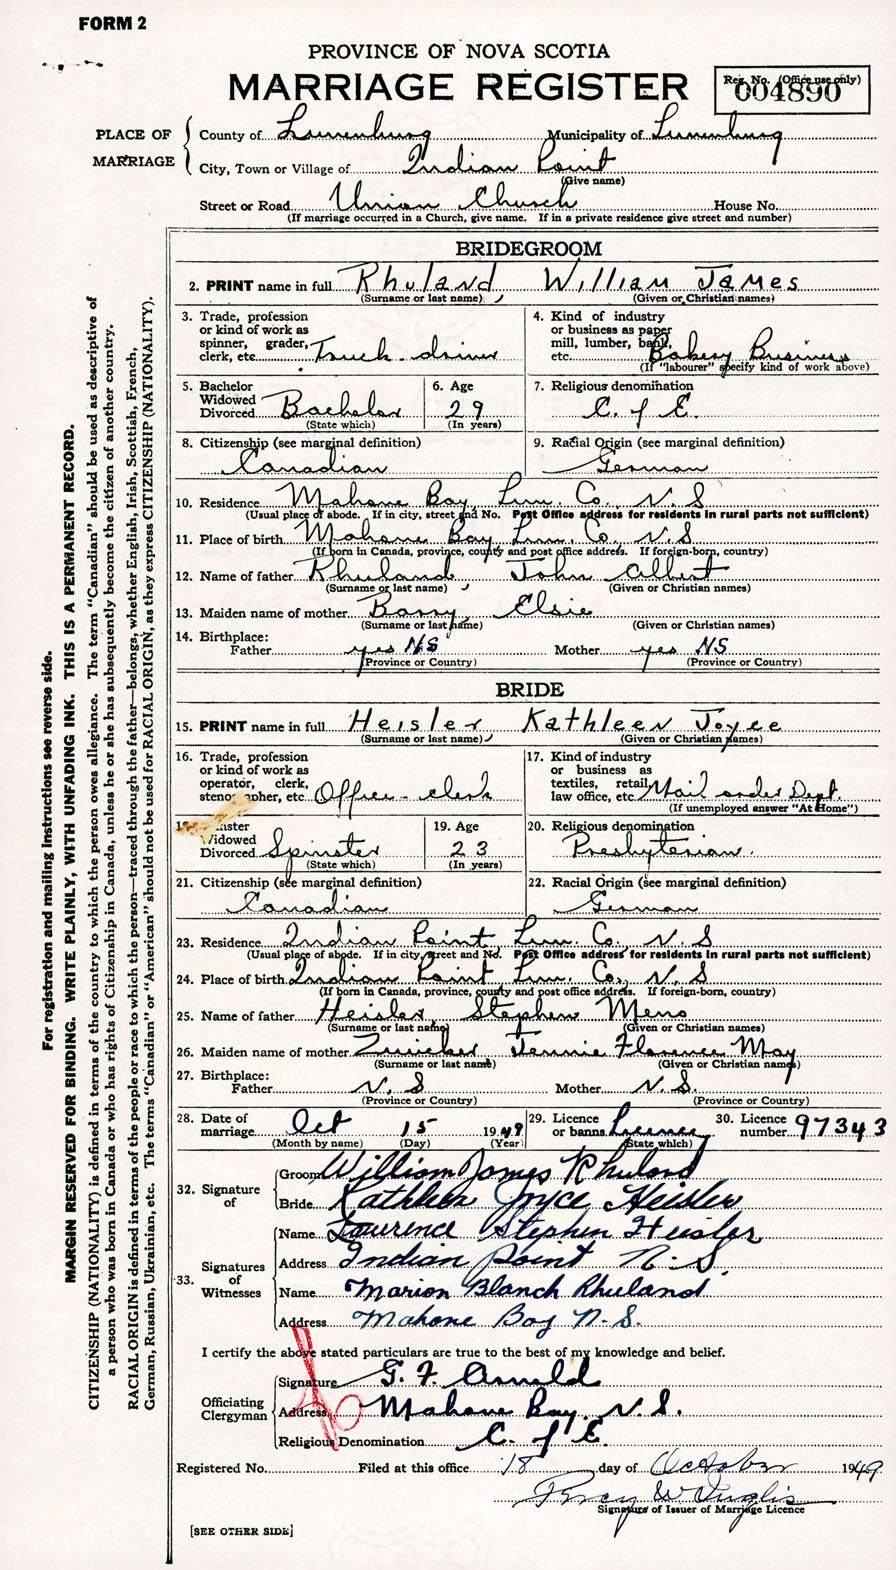 FORM 2
PROVINCE OF NOVA SCOTIA
MARRIAGE REGISTER
Reg. No. (Office use only)
004890
PLACE OF MARRIAGE
County of Lunenburg Municipality of Lunenburg
City, Town or Village of Indian Point
(Give name)
Street or Road Union Church House No.
(If marriage occurred in a Church, give name. If in a private residence give street and number)
BRIDEGROOM
2. PRINT name in full Rhuland, William James
(Surname or last name) (Given or Christian names)
3. Trade, profession or kind of work as spinner, grader, clerk, etc. Truck-driver
4. Kind of industry or business as paper mill, lumber, bank, etc. Bakery Business
(If "labourer" specify kind of work above)
5. Bachelor Widowed Divorced Bachelor
(State which)
6. Age 29
(In years)
7. Religious denomination C. of E.
8. Citizenship (see marginal definition) Canadian
9. Racial Origin (see marginal definition) German
10. Residence Mahone Bay Lun. Co., N.S
(Usual place of abode. If in city, street and No. Post Office address for residents in rural parts not sufficient)
11. Place of birth Mahone Bay Lun. Co., N.S
(If born in Canada, province, county and post office address. If foreign-born, country)
12. Name of father Rhuland, John Albert
(Surname or last name) (Given or Christian names)
13. Maiden name of mother Barry, Elsie
(Surname or last name) (Given or Christian names)
14. Birthplace:
Father yes NS Mother yes NS
(Province or Country) (Province or Country)
BRIDE
15. PRINT name in full Heisler, Kathleen Joyce
(Surname or last name) (Given or Christian names)
16. Trade, profession or kind of work as operator, clerk, stenographer, etc. Office-clerk
17. Kind of industry or business as textiles, retail, law office, etc. Mail order Dept.
(If unemployed answer "At Home")
18. Spinster Widowed Divorced Spinster
(State which)
19. Age 23
(In years)
20. Religious denomination Presbyterian.
21. Citizenship (see marginal definition) Canadian
22. Racial Origin (see marginal definition) German
23. Residence Indian Point Lun. Co., N.S
(Usual place of abode. If in city, street and No. Post Office address for residents in rural parts not sufficient)
24. Place of birth Indian Point Lun. Co., N.S
(If born in Canada, province, county and post office address. If foreign-born, country)
25. Name of father Heisler, Stephen Meno
(Surname or last name) (Given or Christian names)
26. Maiden name of mother Zwicker Jennie Florence May
(Surname or last name) (Given or Christian names)
27. Birthplace:
Father N.S Mother N.S.
(Province or Country) (Province or Country)
28. Date of marriage Oct 15 1949
(Month by name) (Day) (Year)
29. Licence or banns Licence
(State which)
30. Licence number 97343
32. Signature of
Groom William James Rhuland
Bride Kathleen Joyce Heisler
33. Signatures of Witnesses
Name Lawrence Stephen Heisler
Address Indian Point N.S.
Name Marion Blanch Rhuland
Address Mahone Bay N.S.
I certify the above stated particulars are true to the best of my knowledge and belief.
Officiating Clergyman
Signature G. F. Arnold
Address Mahone Bay, N.S.
Religious Denomination C. of E.
Registered No. Filed at this office 18 day of October 1949
Percy W Inglis
Signature of Issuer of Marriage Licence
[SEE OTHER SIDE]
For registration and mailing instructions see reverse side.
MARGIN RESERVED FOR BINDING. WRITE PLAINLY, WITH UNFADING INK. THIS IS A PERMANENT RECORD.
CITIZENSHIP (NATIONALITY) is defined in terms of the country to which the person owes allegiance. The term "Canadian" should be used as descriptive of
a person who was born in Canada or who has rights of Citizenship in Canada, unless he or she has subsequently become the citizen of another country.
RACIAL ORIGIN is defined in terms of the people or race to which the person—traced through the father—belongs, whether English, Irish, Scottish, French,
German, Russian, Ukrainian, etc. The terms "Canadian" or "American" should not be used for RACIAL ORIGIN, as they express CITIZENSHIP (NATIONALITY).